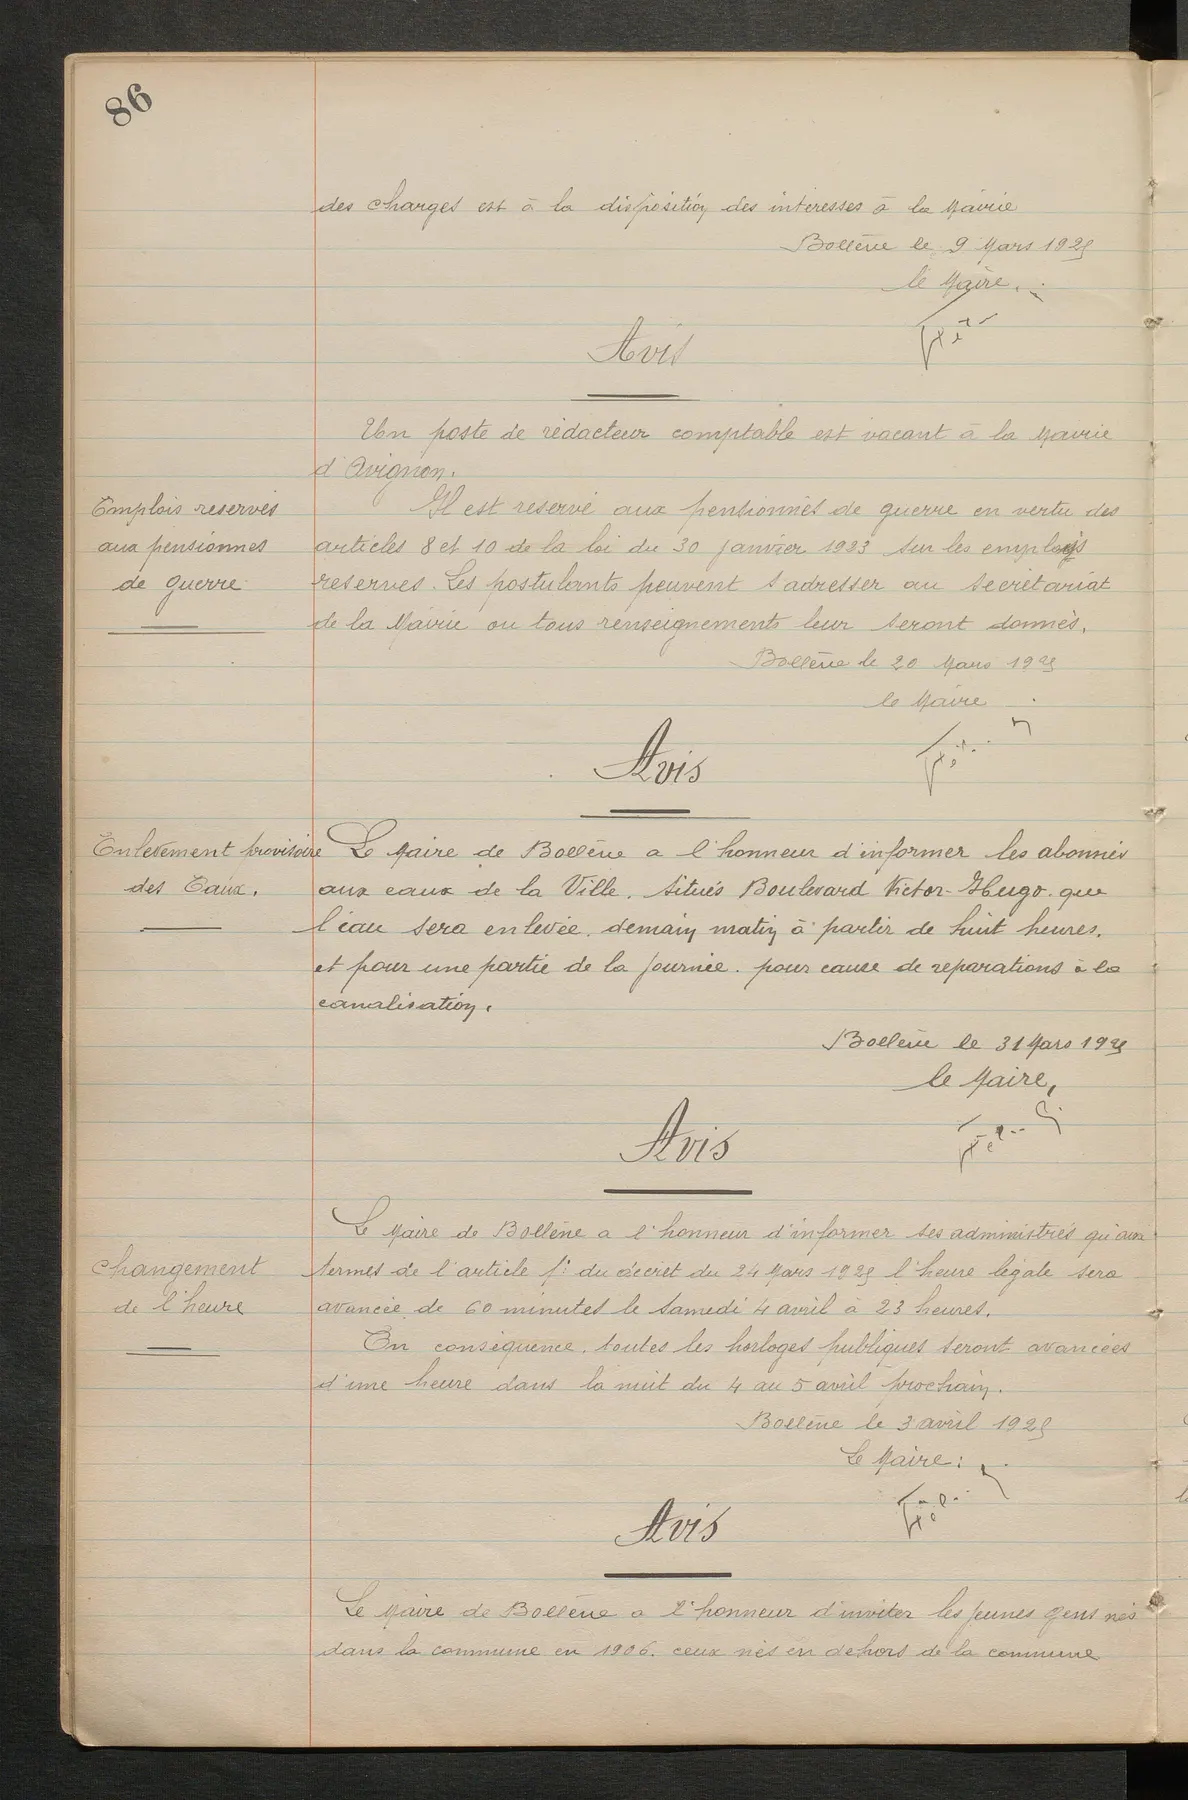 86
des charges est à la disposition des interesses à la Mairie
Bollène le 9 Mars 1925
le Maire.
Avis
Un poste de rédacteur comptable est vacant à la Mairie
d'Avignon.
Emplois reservés
aux pensionnes
de guerre
Il est reservé aux pensionnés de guerre en vertu des
articles 8 et 10 de la loi du 30 janvier 1923 sur les emplois
reserves. Les postulants peuvent s'adresser au secrétariat
de la Mairie ou tous renseignements leur seront donnés.
Bollène le 20 Mars 1925
le Maire
Avis
Enlevement provisoire
des Eaux.
Le Maire de Bollène a l'honneur d'informer les abonnés
aux eaux de la Ville. situés Boulevard Victor-Hugo. que
l'eau sera enlevée. demain matin à partir de huit heures.
et pour une partie de la journée. pour cause de reparations à la
canalisation.
Bollène le 31 Mars 1925
le Maire,
Avis
Changement
de l'heure
Le Maire de Bollène a l'honneur d'informer ses administrés qu'aux
termes de l'article 1: du décret du 24 Mars 1925 l'heure légale sera
avancée de 60 minutes le samedi 4 avril à 23 heures.
En conséquence. toutes les horloges publiques seront avancées
d'une heure dans la nuit du 4 au 5 avril prochain.
Bollène le 3 avril 1925
Le Maire:
Avis
Le Maire de Bollène a l'honneur d'inviter les jeunes gens nés
dans la commune en 1906. ceux nés en dehors de la commune